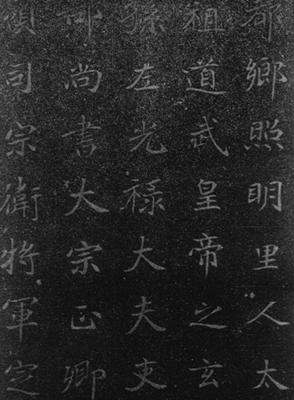 都鄉照明里人太
祖道武皇帝之玄
孫左光祿大夫吏
部尚書大宗正卿
司宗衛將軍定